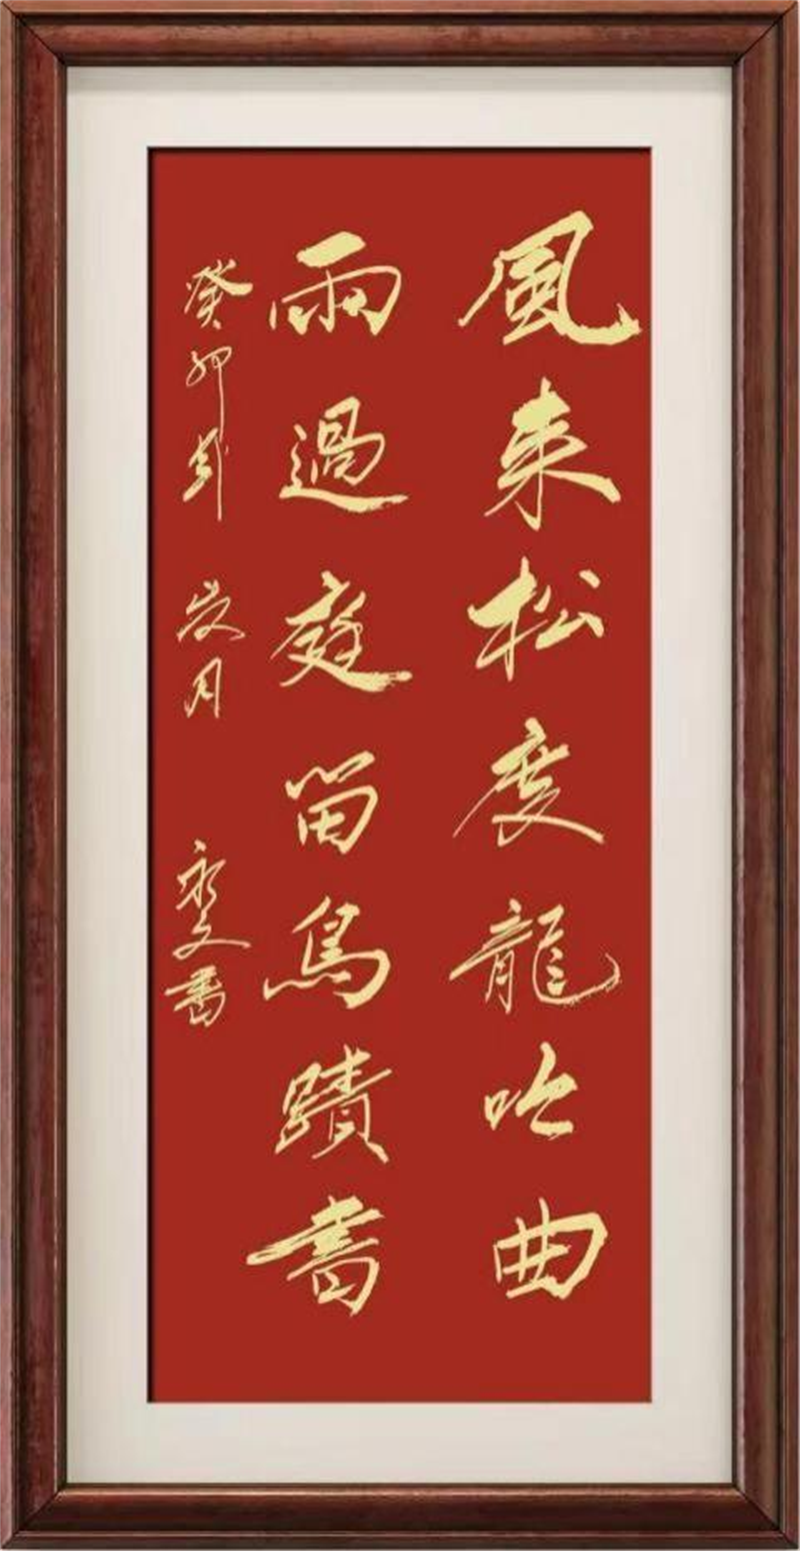 風来松度龍吟曲
雨過庭留鳥蹟書
癸卯 岁月 永文書